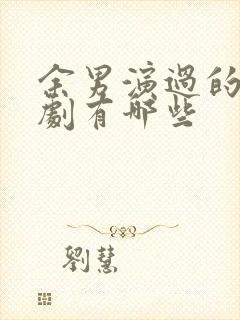 余男演過的
劇有哪些
劉慧